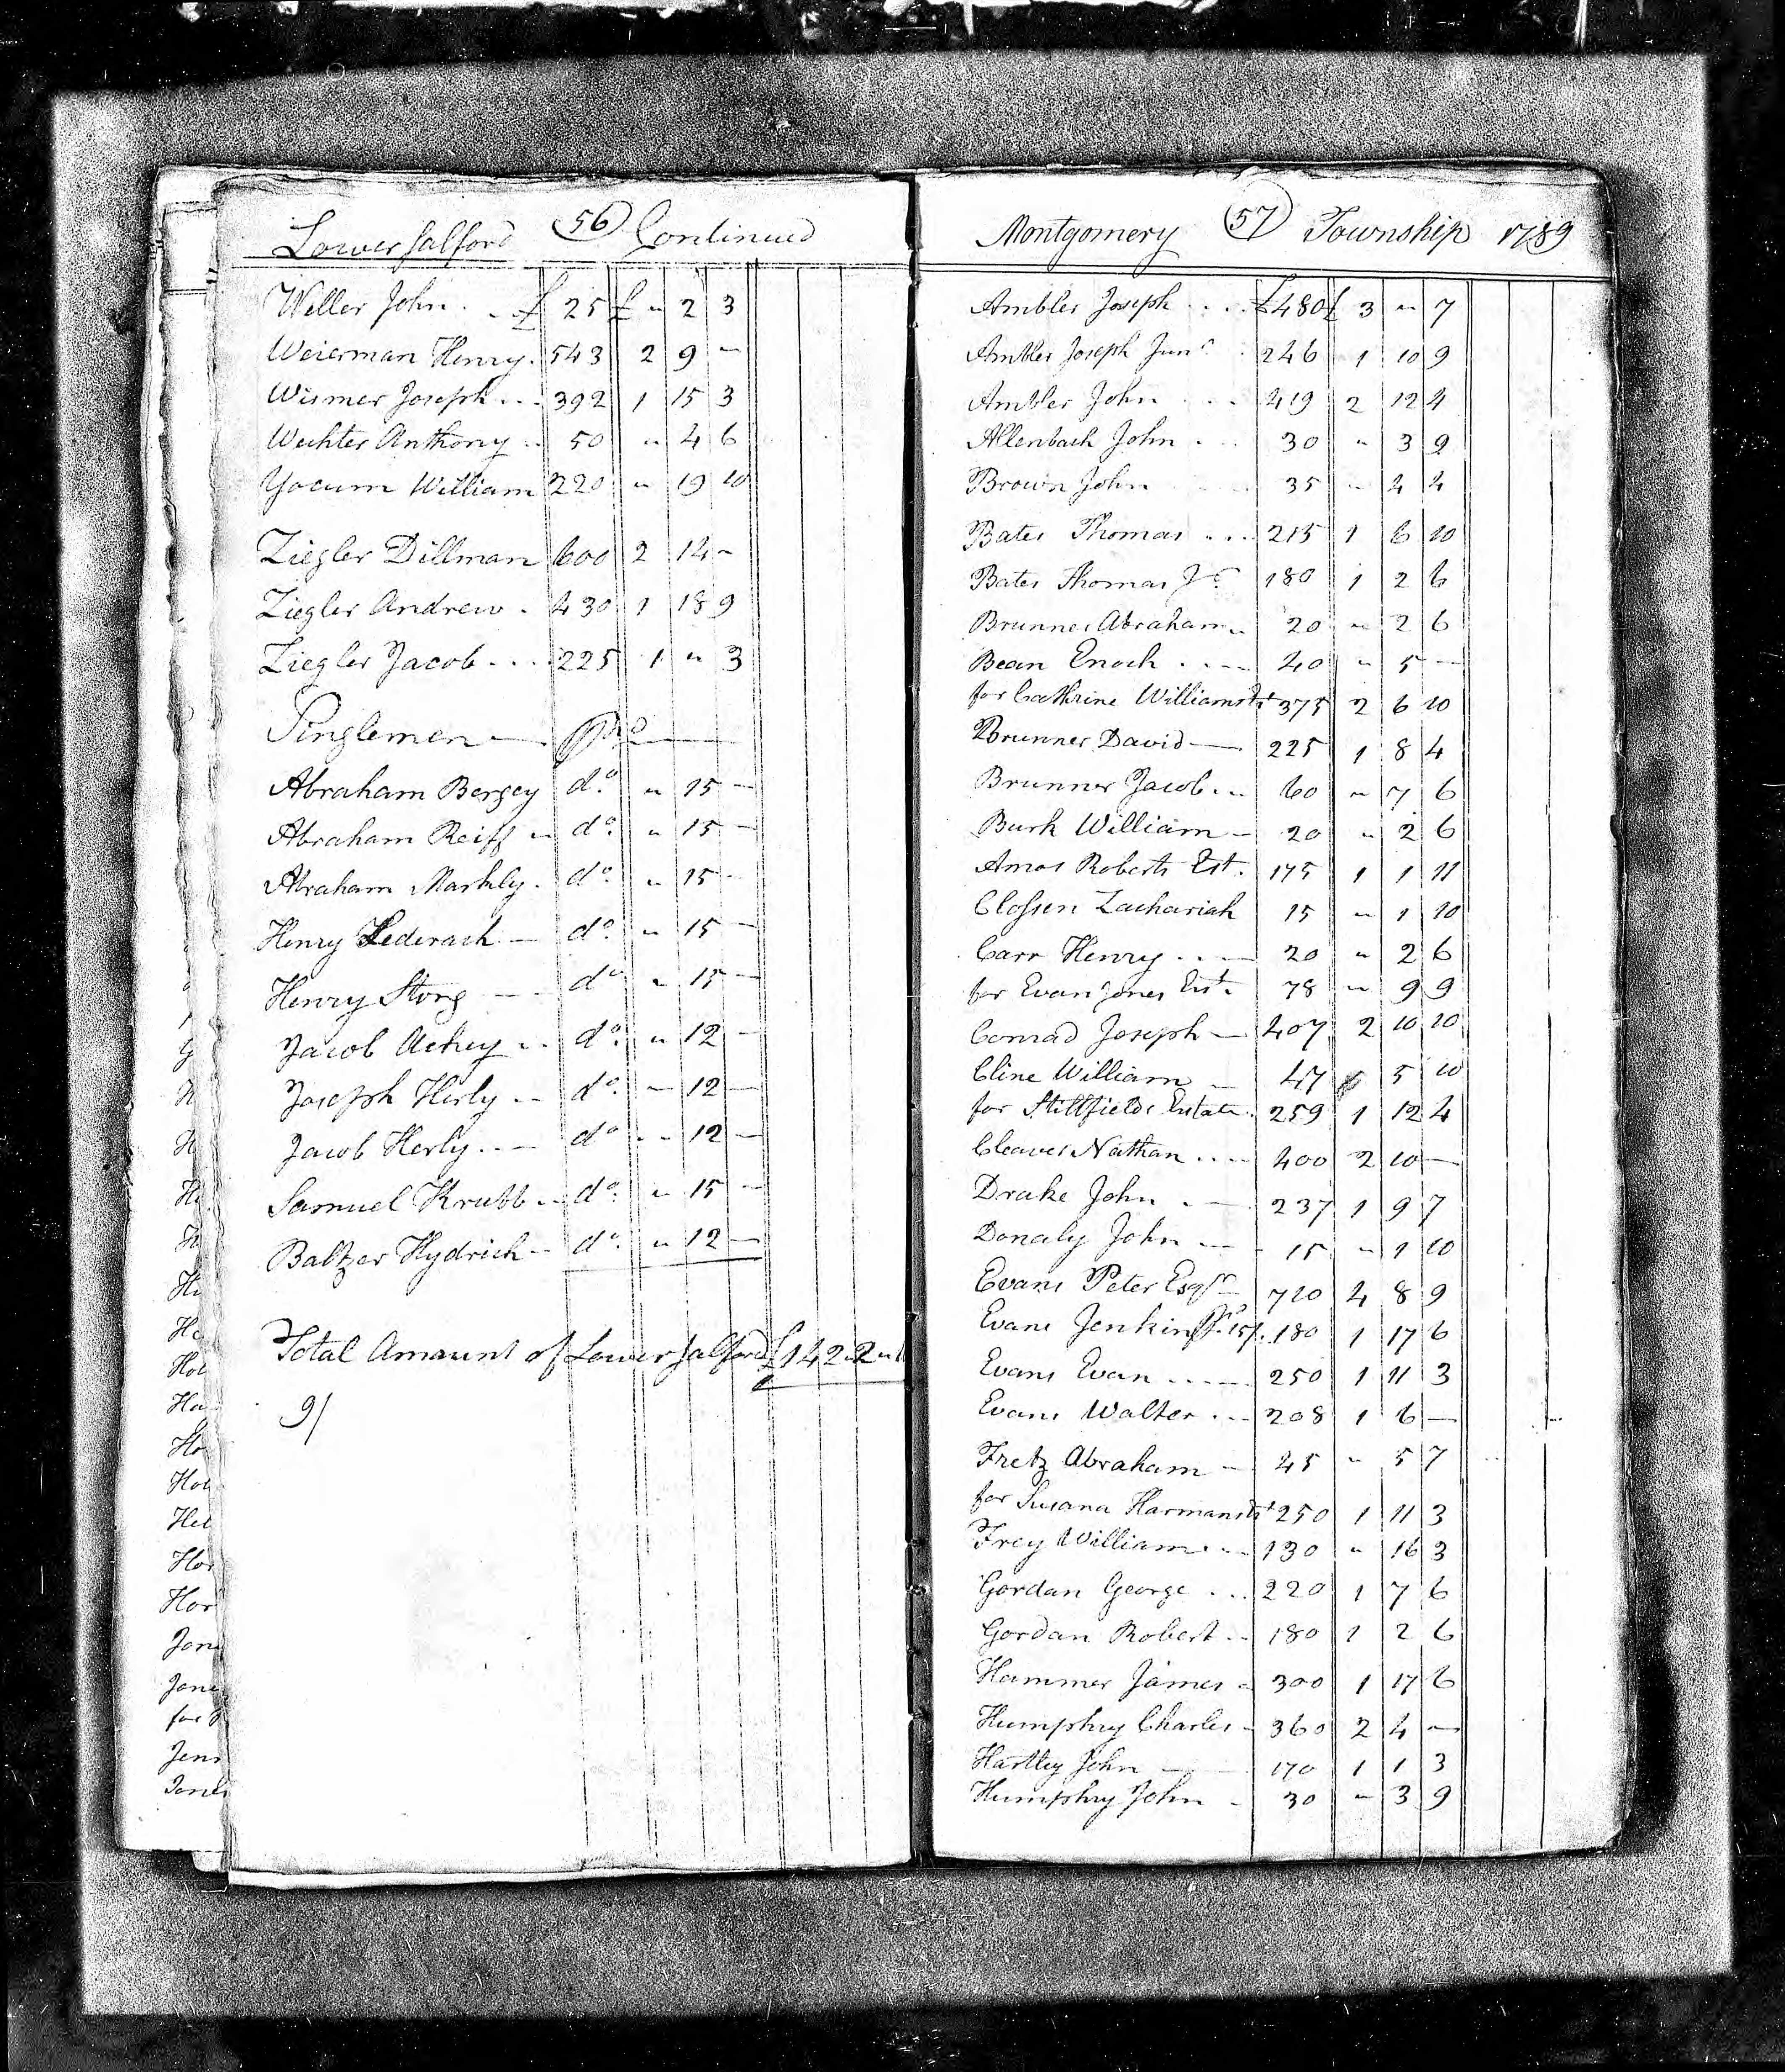 Lower Salford 56 Continued
Weller John . . . £ 25 £ " 2 3
Weierman Henry . 543 2 9 —
Wismer Joseph . . . 392 1 15 3
Wechter Anthony . . 50 " 4 6
Yocum William 220 " 19 10
Ziegler Dillman 600 2 14 -
Ziegler Andrew . 430 1 18 9
Ziegler Jacob . . . . 225 1 " 3
Singlemen —
Abraham Bergey do. " 15 —
Abraham Reiff do. " 15 —
Abraham Markly . do. " 15 —
Henry Lederach — do. " 15 —
Henry Stong — do " 15 —
Jacob Achey . . do. " 12 —
Joseph Herly . . do. — 12 —
Jacob Herly . . — do . . 12 —
Samuel Krubb . . do. " 15 —
Baltzer Hydrich — do. " 12 —
Total Amount of Lower Salford £142 " 2 "
9/
H
Ho
Hol
Ha
Ho
Hol
Hel
Hor
Hor
Jon
Jone
for J
Jen
Montgomery 57 Township 1789
Ambler Joseph . . . . £480 £ 3 " 7
Ambler Joseph Junr . 246 1 10 9
Ambler John . . . 419 2 12 4
Allenbach John . . . 30 " 3 9
Brown John 35 " 4 4
Bates Thomas . . . 215 1 6 10
Bates Thomas Jr. 180 1 2 6
Brunner Abraham . . 20 " 2 6
Bean Enoch . . . . 40 " 5 —
for Cathrine Williams Est 375 2 6 10
Brunner David — 225 1 8 4
Brunner Jacob . . 60 " 7 6
Burk William — 20 " 2 6
Amos Roberts Est. 175 1 1 11
Clossen Zachariah 15 " 1 10
Carr Henry . . . — 20 " 2 6
for Evan Jones Est. 78 " 9 9
Conrad Joseph — 407 2 10 10
Cline William — 47 5 10
for Stillfields Estate . 259 1 12 4
Cleaver Nathan . . . . 400 2 10 —
Drake John . — 237 1 9 7
Donaly John — 15 " 1 10
Evans Peter Esqr — 710 4 8 9
Evans Jenkin 15/. 180 1 17 6
Evans Evan . . . . . 250 1 11 3
Evans Walter . . . 208 1 6 —
Fretz Abraham — 45 " 5 7
for Susana Harmans Est 250 1 11 3
Frey William . . . 130 " 16 3
Gordan George . . . 220 1 7 6
Gordan Robert . . 180 1 2 6
Hammer James . 300 1 17 6
Humphry Charles . 360 2 4 —
Hartley John — 170 1 1 3
Humphry John . 30 " 3 9